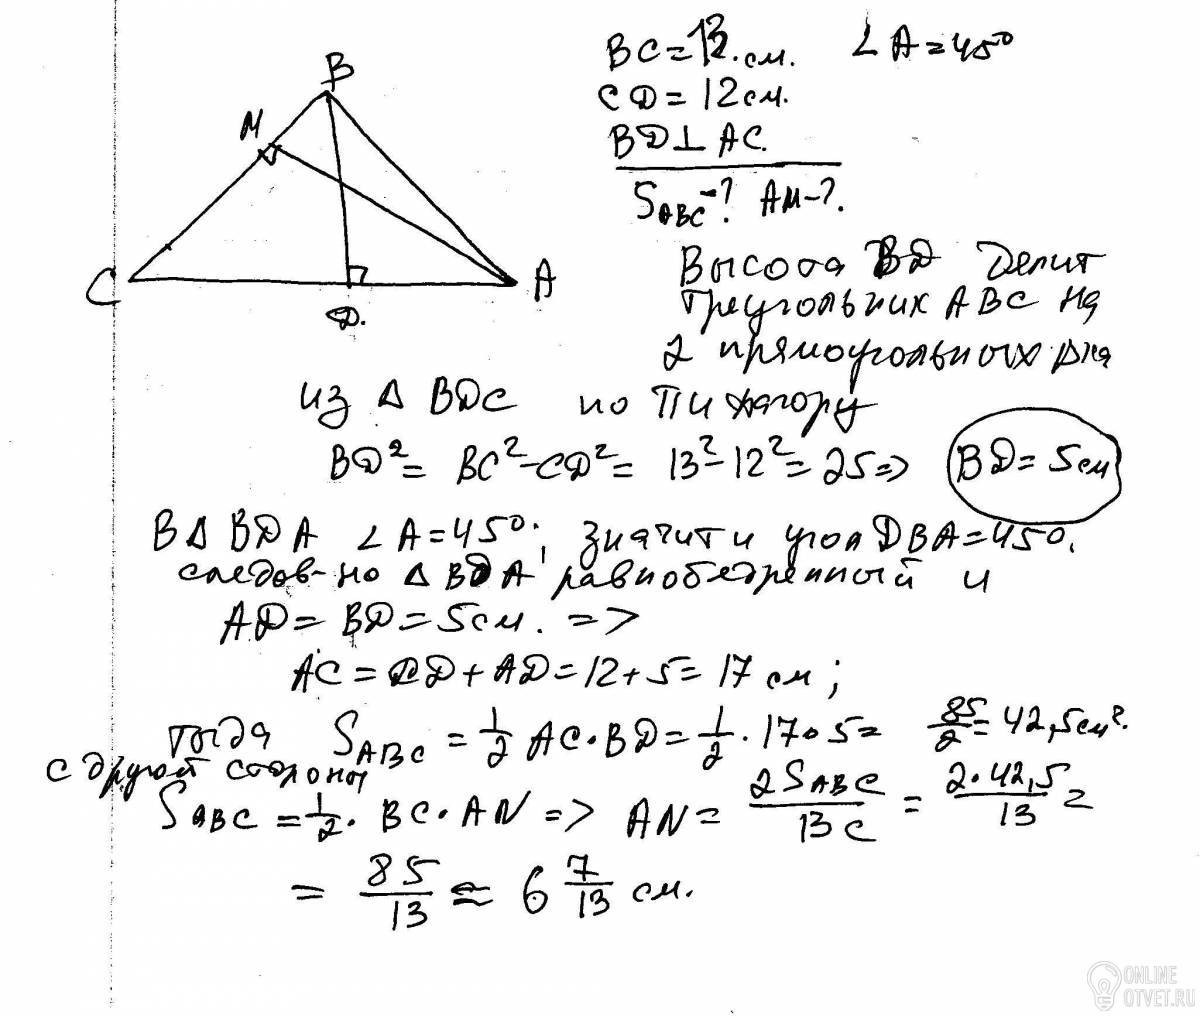 B
M
C
D.
A
BC=13.см. ∠A=45°
CD=12см.
BD⊥AC.
S_ABC-? AM-?.
Высота BD делит
треугольник ABC на
2 прямоугольных Δка
из Δ BDC по Пифагору
BD²= BC²-CD²= 13²-12²=25=> BD=5см
В Δ BDA ∠A=45°; значит и угол DBA=45°.
следов-но Δ BDA равнобедренный и
AD=BD=5см. =>
AC=CD+AD=12+5=17 см;
тогда S_ABC = 1/2 AC·BD=1/2·17·5= 85/2=42,5см².
с другой стороны
S_ABC=1/2·BC·AN => AN= 2S_ABC/BC = 2·42,5/13 =
= 85/13 ≈ 6 7/13 см.
ONLINE
OTVET.RU